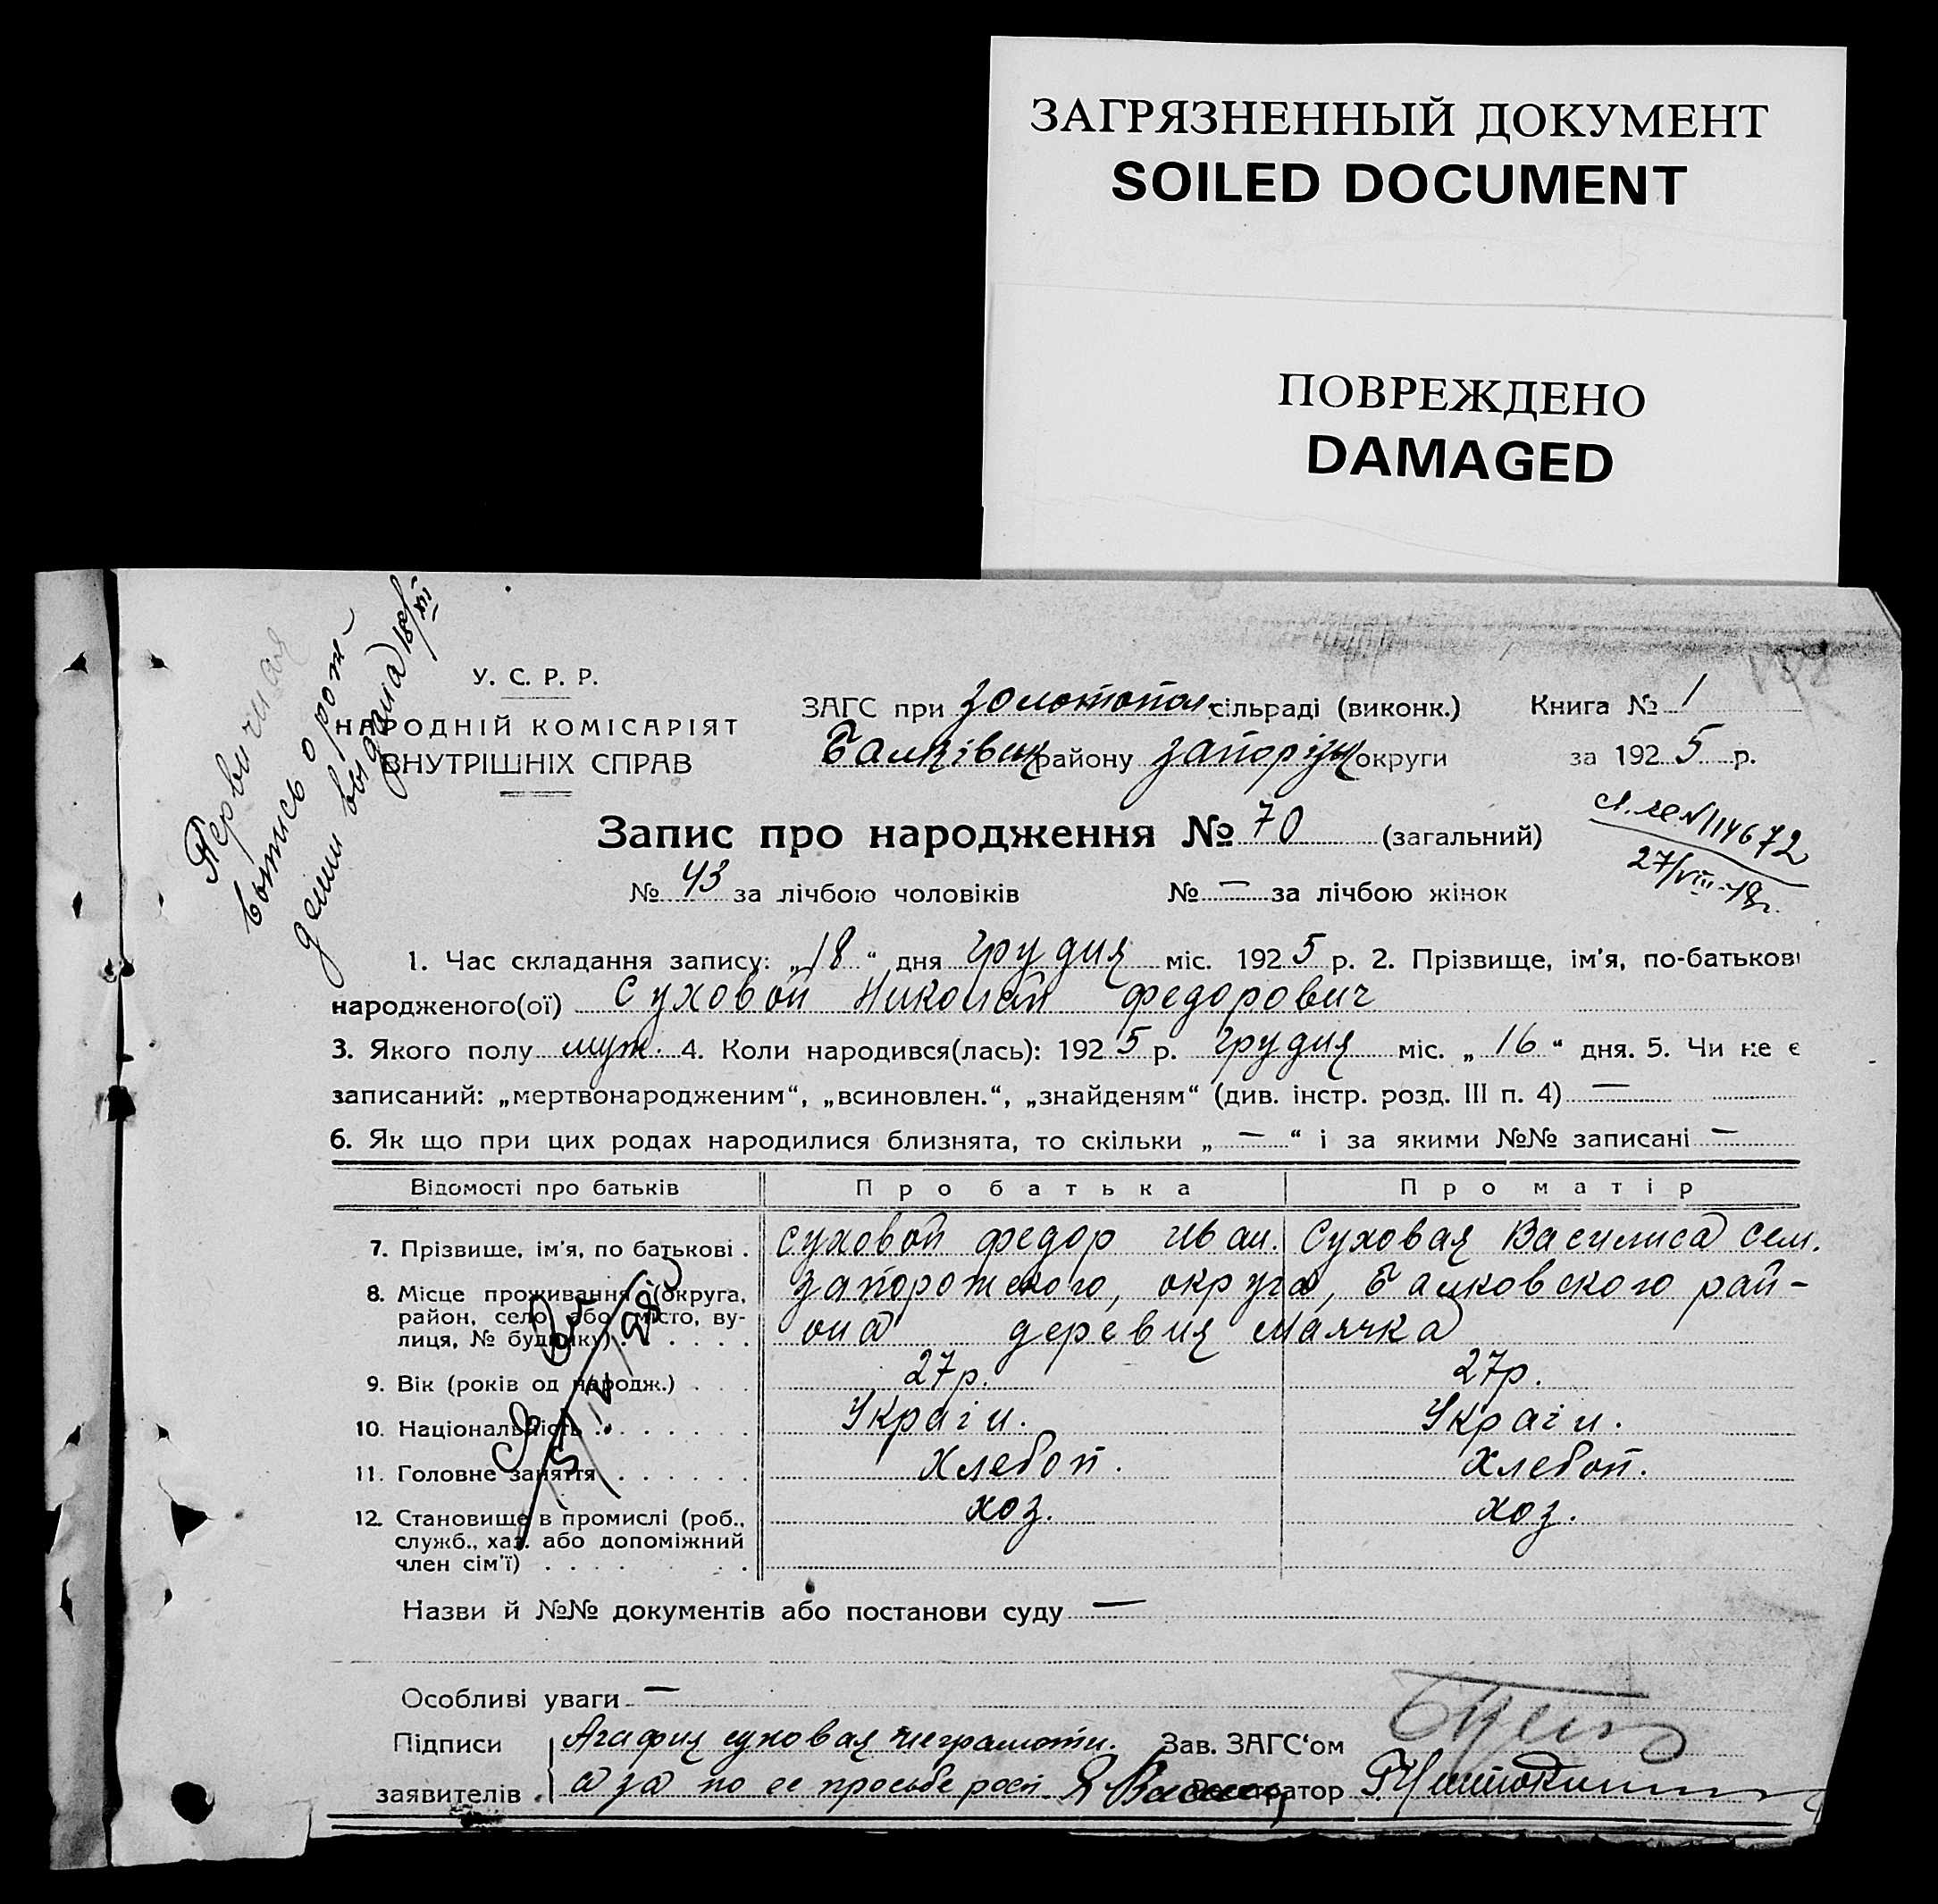 ЗАГРЯЗНЕННЫЙ ДОКУМЕНТ
SOILED DOCUMENT
ПОВРЕЖДЕНО
DAMAGED
Первичная
выпись о рож-
дении выдана 18/XII
У. С. Р. Р.
НАРОДНІЙ КОМІСАРІЯТ
ВНУТРІШНІХ СПРАВ
ЗАГС при Золотопол. сільраді (виконк.) Книга № 1
Балківськ району Запорізьк округи за 1925 р.
Запис про народження № 70 (загальний)
№ 43 за лічбою чоловіків № — за лічбою жінок
№ 114672
27/VIII-
1. Час складання запису: „18“ дня Грудня міс. 1925 р. 2. Прізвище, ім'я, по-батькові
народженого(ої) Суховой Николай Федорович
3. Якого полу муж. 4. Коли народився(лась): 1925 р. Грудня міс. „16“ дня. 5. Чи не є
записаний: „мертвонародженим“, „всиновлен.“, „знайденям“ (див. інстр. розд. III п. 4) —
6. Як що при цих родах народилися близнята, то скільки „—“ і за якими №№ записані —
Відомості про батьків Про батька Про матір
7. Прізвище, ім'я, по батькові . Суховой Федор Иван. Суховая Василиса Сем.
8. Місце проживання (округа, район, село або місто, вулиця, № будинку) . . . . . Запорожского, округа, Балковского рай-
она деревня Маячка
9. Вік (років од народж.) . . . 27р. 27р.
10. Національність . . . . . . . Україн. Україн.
11. Головне заняття . . . . . . Хлебоп. Хлебоп.
12. Становище в промислі (роб., служб., хаз. або допоміжний член сім'ї) . . . . . . хоз. хоз.
Назви й №№ документів або постанови суду —
Особливі уваги —
Підписи Агафия Суховая неграмотн. Зав. ЗАГС'ом
заявителів . а за по ее просьбе росп. Реєстратор